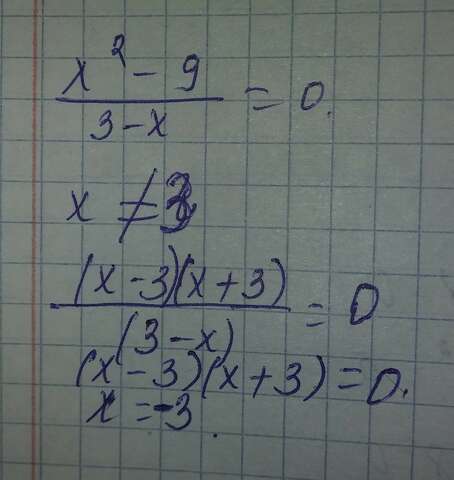 x² - 9
3 - x
= 0.
x ≠ 3
(x - 3)(x + 3)
(3 - x)
= 0
(x - 3)(x + 3) = 0.
x = -3.